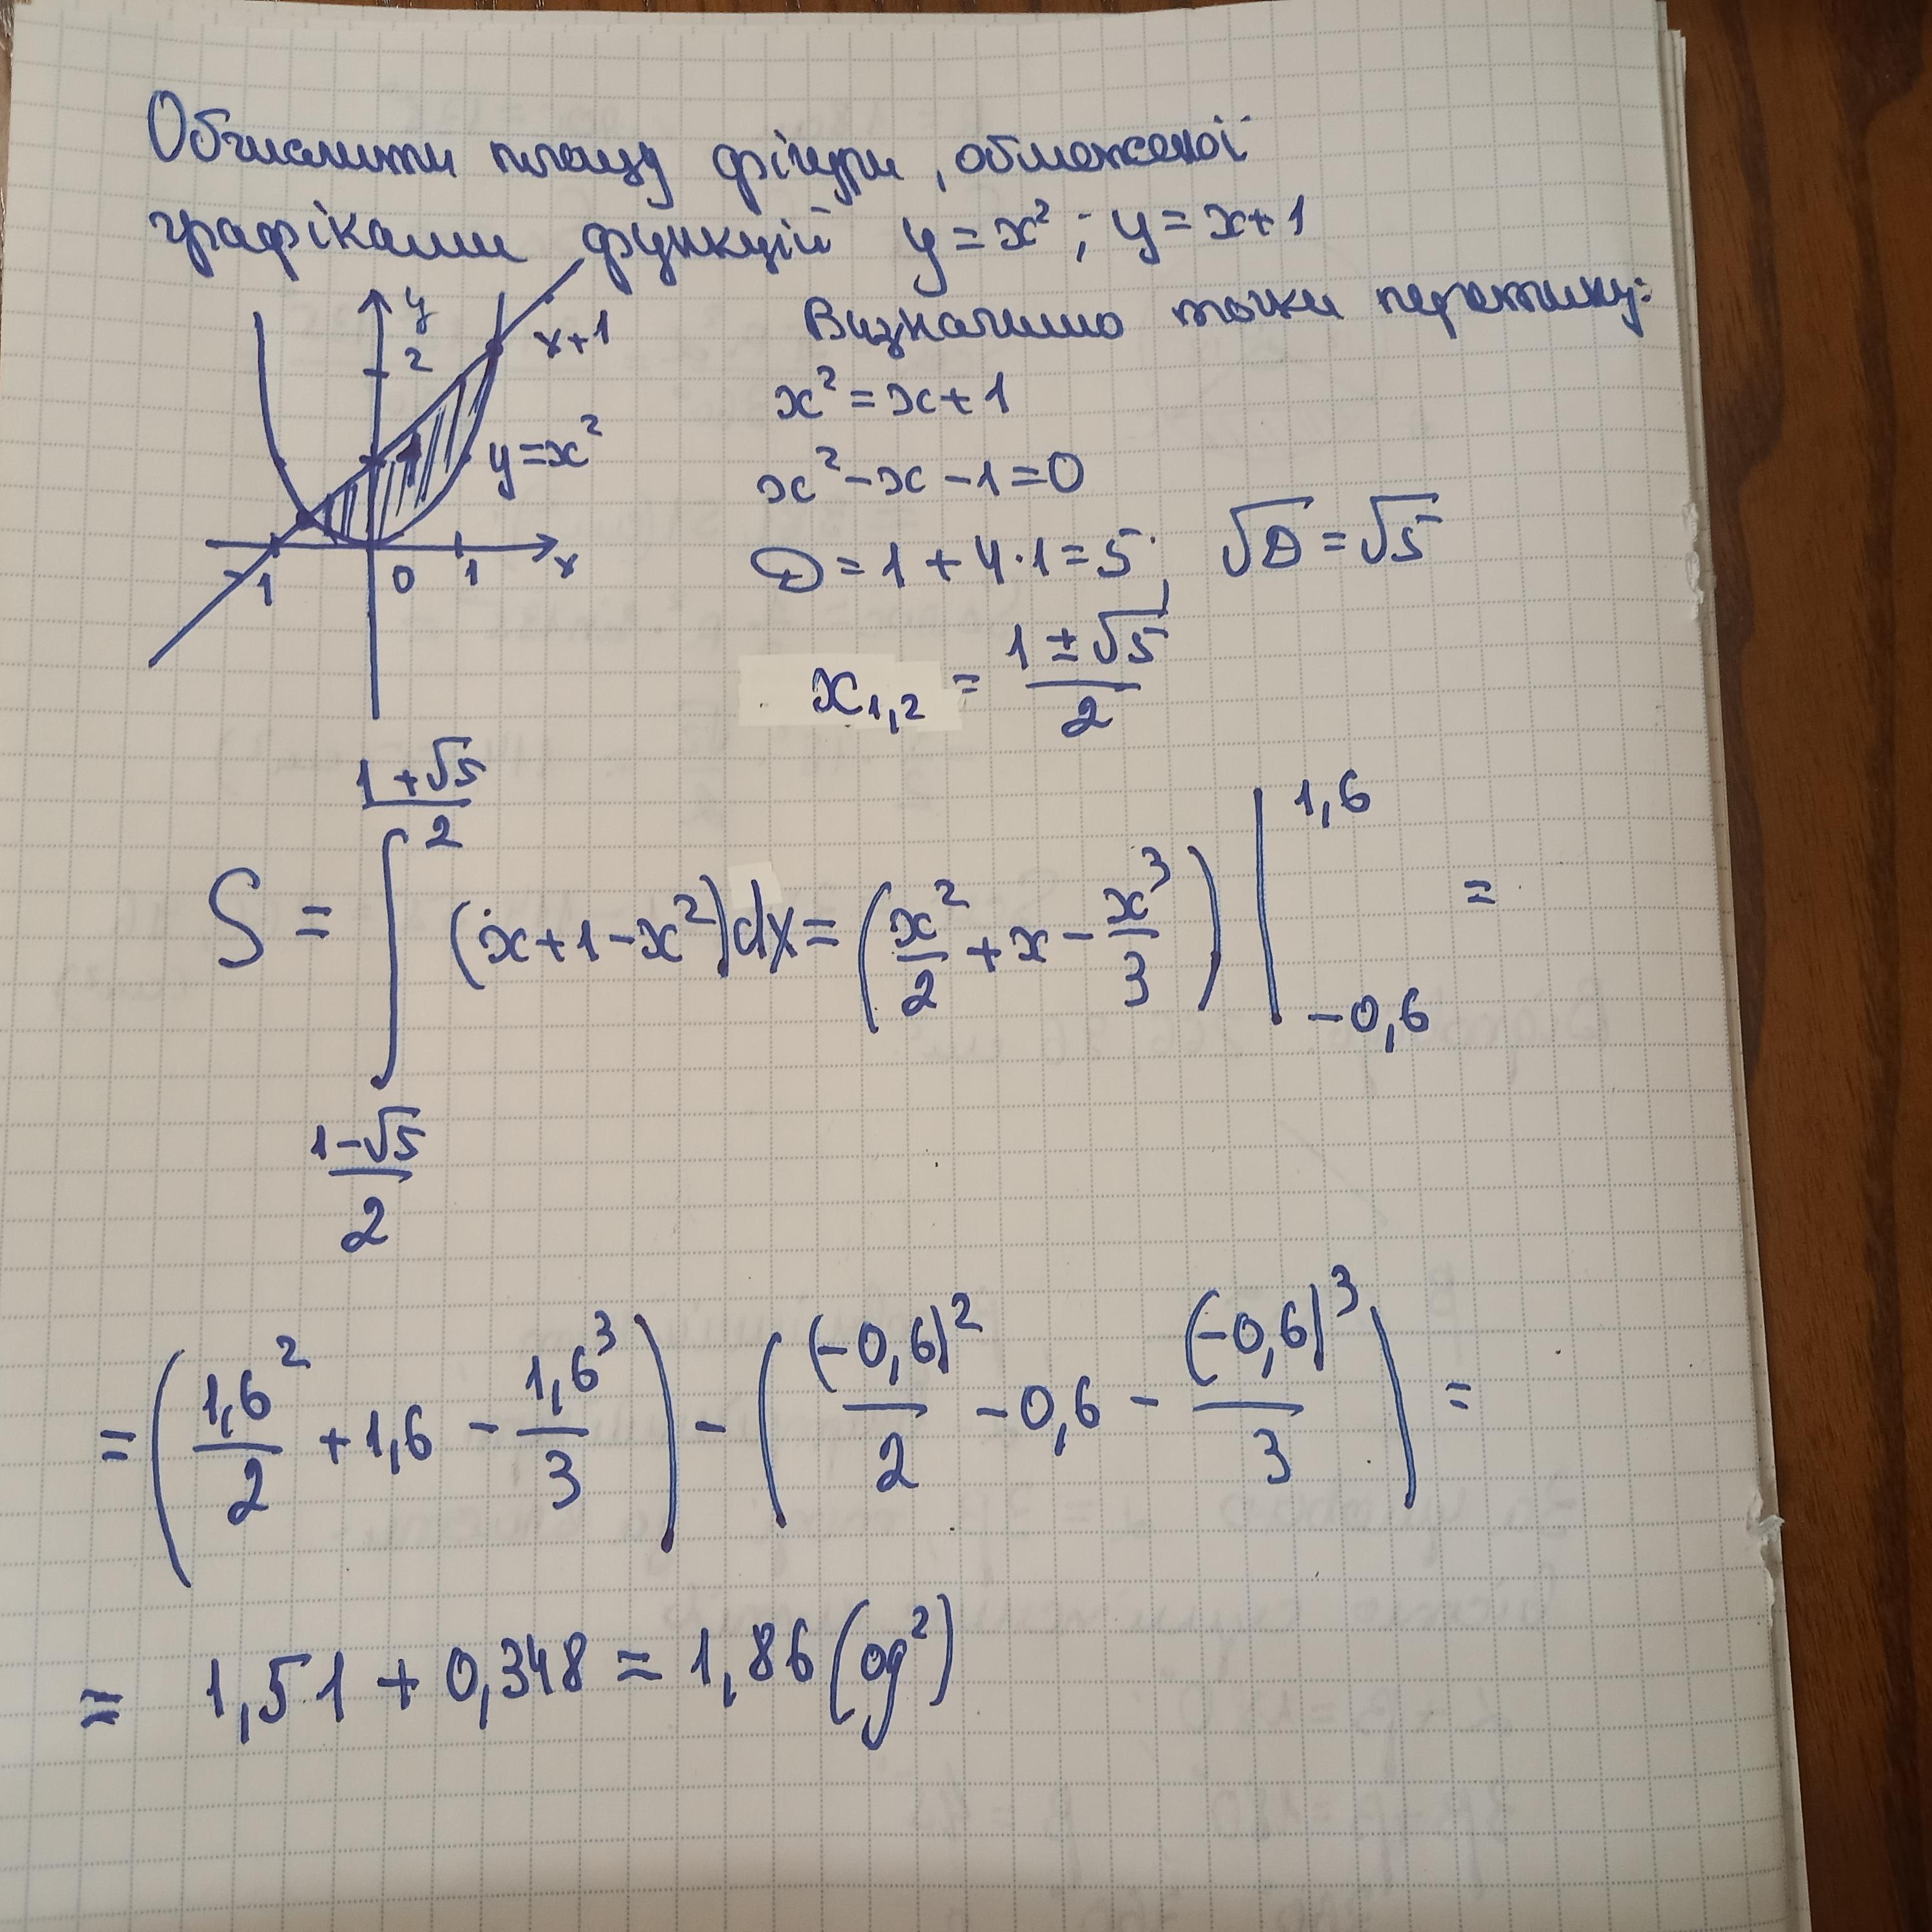 Обчислити площу фігури, обмеженої
графіками функцій y = x²; y = x+1
y
2
x+1
y=x²
-1 0 1 x
Визначимо точки перетину:
x² = x+1
x² - x - 1 = 0
D = 1 + 4·1 = 5; √D = √5
x₁,₂ = (1 ± √5)/2
S = ∫_{(1-√5)/2}^{(1+√5)/2} (x+1-x²)dx = (x²/2 + x - x³/3) |_{-0,6}^{1,6} =
= (1,6²/2 + 1,6 - 1,6³/3) - ((-0,6)²/2 - 0,6 - (-0,6)³/3) =
= 1,51 + 0,348 = 1,86 (од²)